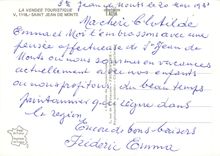 LA VENDEE TOURISTIQUE
V. 1118 - SAINT JEAN DE MONTS
St Jean de Monts le 20 Mai
Ma chère Clotilde
Emma et Moi t'embrassons avec une
pensée affectueuse de St Jean de
Monts ou nous sommes en vacances
actuellement avec nos enfants
ou nous profitons du beau temps
printannier qui règne dans
la région
Encore de bons baisers
Frédéric Emma